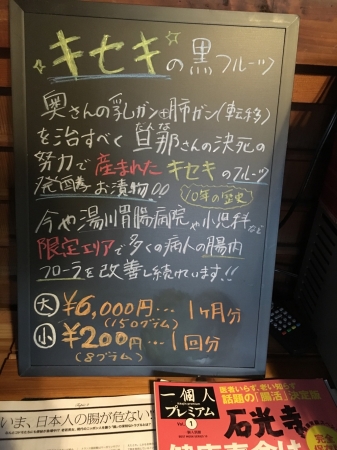 キセキの黒フルーツ
奥さんの乳ガン+肺ガン(転移)
を治すべく旦那さんの決死の
だんな
努力で産まれたキセキのフルーツ
発酵お漬物!!
10年の歴史
今や湯川胃腸病院や小児科など
限定エリアで多くの病人の腸内
フローラを改善し続けています!!
大 ¥6,000円…1ヶ月分
(150グラム)
小 ¥200円…1回分
(8グラム)
いま、日本人の腸が危ない
一個人
プレミアム
Vol. 1
医者いらず、老い知らず
話題の「腸活」決定版